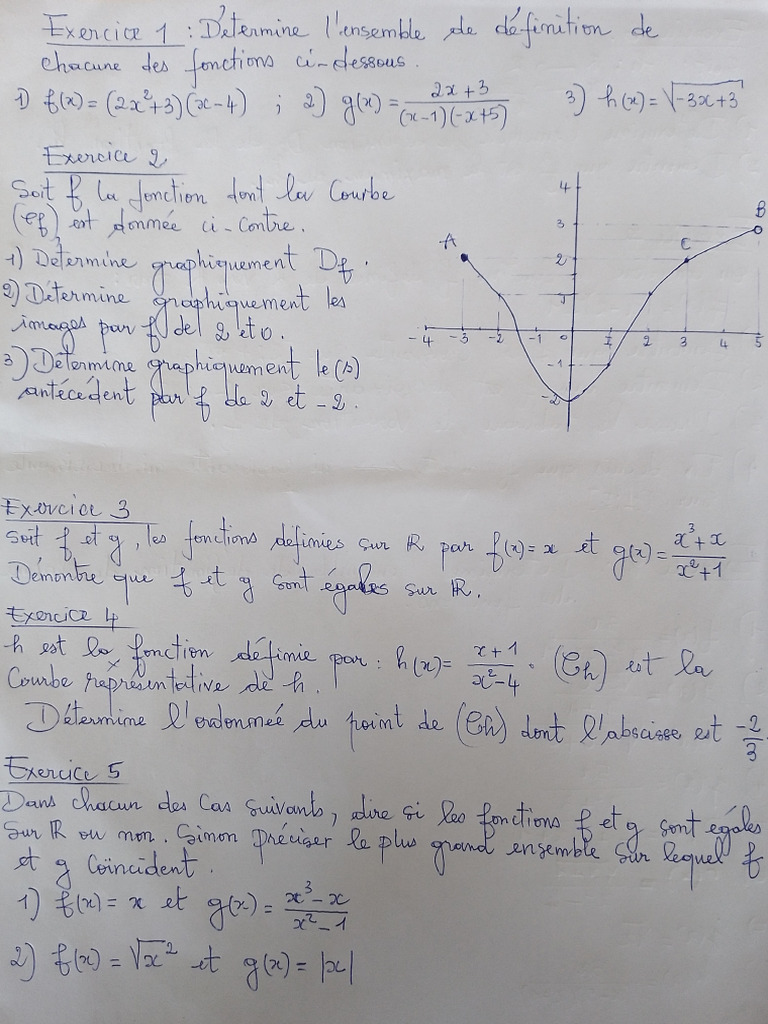 Exercice 1 : Détermine l'ensemble de définition de
chacune des fonctions ci-dessous.
1) f(x) = (2x²+3)(x-4) ; 2) g(x) = (2x+3)/((x-1)(-x+5)) 3) h(x) = √(-3x+3)
Exercice 2
Soit f la fonction dont la Courbe
(Cf) est donnée ci-contre.
1) Détermine graphiquement Df.
2) Détermine graphiquement les
images par f de 2 et 0.
3) Détermine graphiquement le(s)
antécédent par f de 2 et -2.
4
3
2
1
-1
-2
-4 -3 -2 -1 0 I 2 3 4 5
A
C
B
Exercice 3
Soit f et g, les fonctions définies sur ℝ par f(x) = x et g(x) = (x³+x)/(x²+1)
Démontre que f et g sont égales sur ℝ.
Exercice 4
h est la fonction définie par : h(x) = (x+1)/(x²-4). (Ch) est la
Courbe représentative de h.
Détermine l'ordonnée du point de (Ch) dont l'abscisse est -2/3.
Exercice 5
Dans chacun des Cas suivants, dire si les fonctions f et g sont égales
sur ℝ ou non. Sinon préciser le plus grand ensemble sur lequel f
et g coïncident.
1) f(x) = x et g(x) = (x³-x)/(x²-1)
2) f(x) = √x² et g(x) = |x|